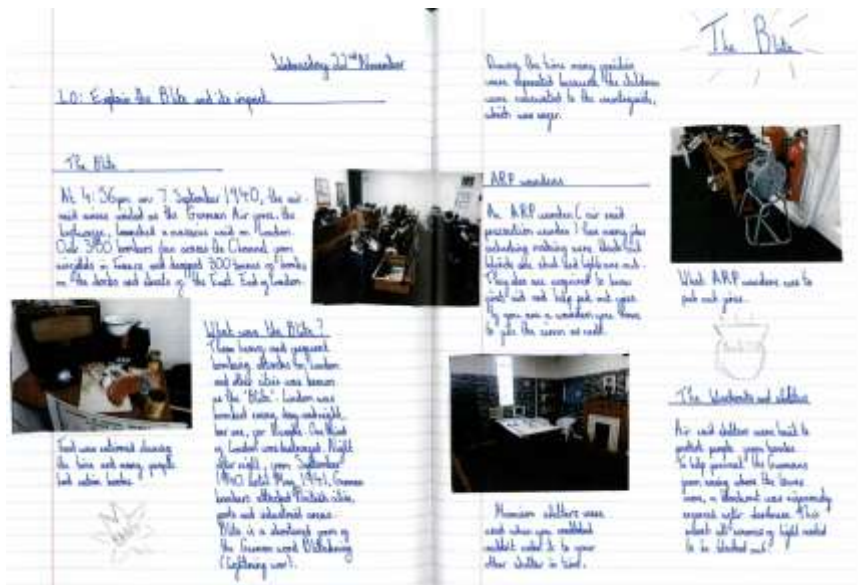 Wednesday 22nd November
LO: Explain the Blitz and its impact
The Blitz
At 4:36pm on 7 September 1940, the air-
raid sirens wailed as the German Air force, the
Luftwaffe, launched a massive raid on London.
Over 350 bombers flew across the Channel from
airfields in France and dropped 300 tonnes of bombs
on the docks and streets of the East End of London.
Food was rationed during
the time and many people
had ration books.
What was the Blitz?
These heavy and frequent
bombing attacks on London
and other cities was known
as the 'Blitz'. London was
bombed every day and night,
bar one, for 11 weeks. One third
of London was destroyed. Night
after night, from September
1940 until May 1941, German
bombers attacked British cities,
ports and industrial areas.
Blitz is a shortened form of
the German word Blitzkrieg
(lightning war).
The Blitz
During the time many families
were separated because the children
were evacuated to the countryside,
which was safer.
ARP wardens
An ARP warden (air raid
precaution warden) has many jobs
including making sure black out
blinds are shut and lights are out.
They also are required to know
first aid and help put out fires.
If you are a warden you have
to the siren as well.
What ARP wardens use to
put out fires.
Morrison shelters were
used when you couldn't
make it to your
other shelter in time.
The blackouts and shelters
Air raid shelters were built to
protect people from bombs.
To help prevent the Germans
from seeing where the towns
were, a blackout was rigorously
enforced after darkness. This
meant all sources of light needed
to be blocked out.